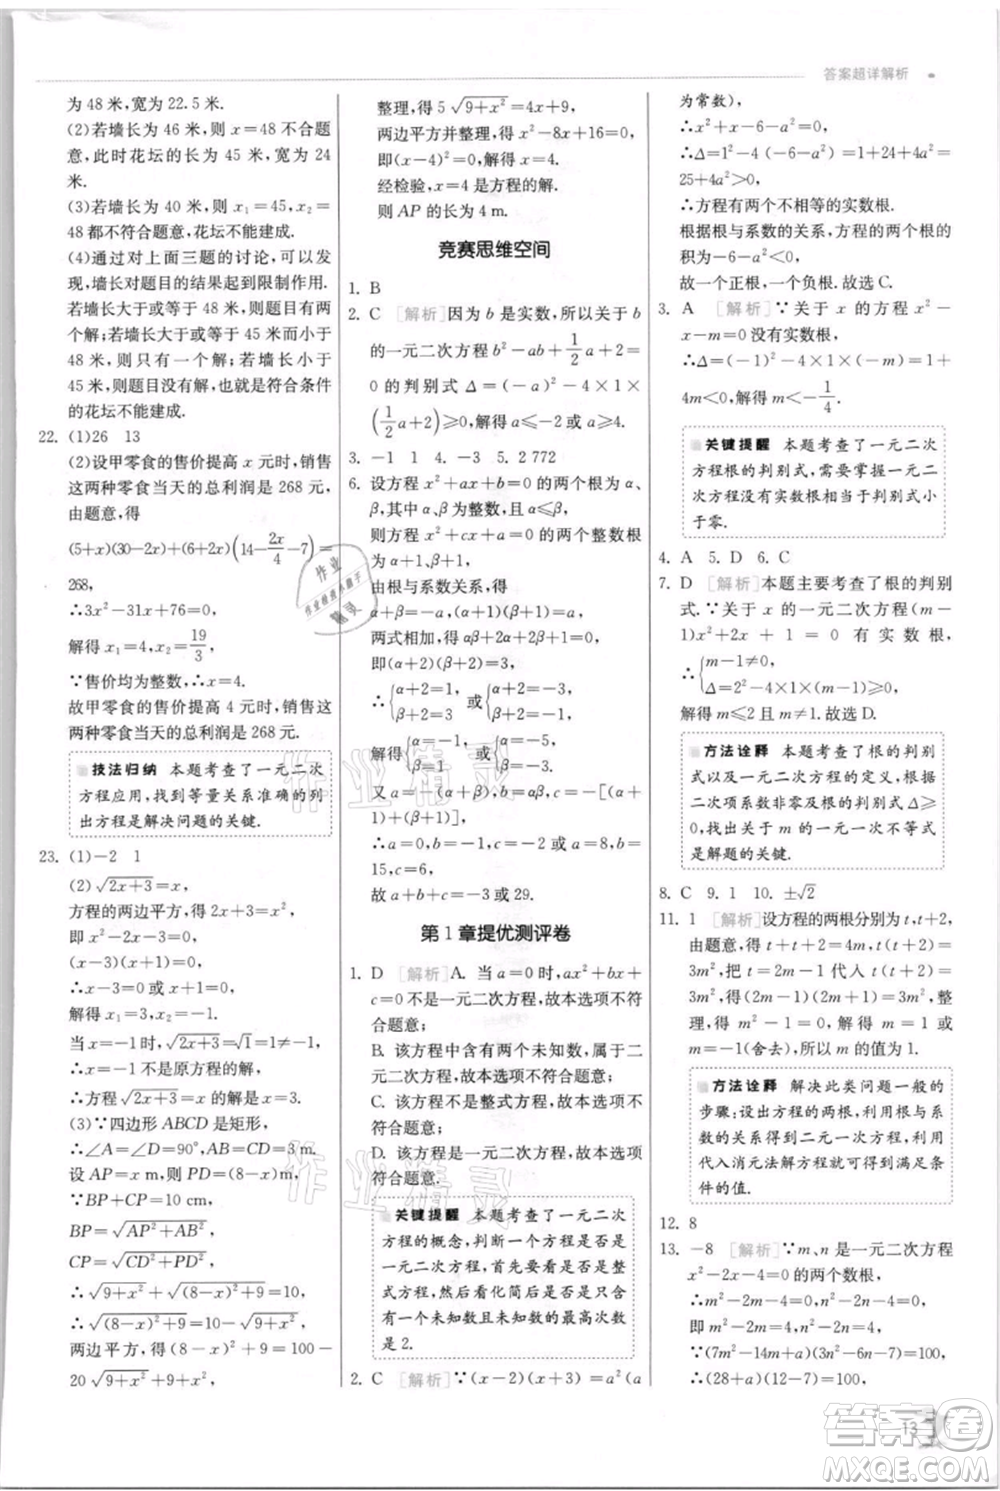 答案超详解析
为 48 米,宽为 22.5 米.
(2)若墙长为 46 米,则 x=48 不合题
意,此时花坛的长为 45 米,宽为 24
米.
(3)若墙长为 40 米,则 x₁=45,x₂=
48 都不符合题意,花坛不能建成.
(4)通过对上面三题的讨论,可以发
现,墙长对题目的结果起到限制作用.
若墙长大于或等于 48 米,则题目有两
个解;若墙长大于或等于 45 米而小于
48 米,则题目有一个解;若墙长小于
45 米,则题目没有解,也就是符合条件
的花坛不能建成.
22. (1)26 13
(2)设甲零食的售价提高 x 元时,销售
这两种零食当天的总利润是 268 元.
由题意,得
(5+x)(30-2x)+(6+2x)(14-2x/4-7)=
268,
∴3x²-31x+76=0,
解得 x₁=4,x₂=19/3,
∵售价均为整数,∴x=4.
故甲零食的售价提高 4 元时,销售这
两种零食当天的总利润是 268 元.
技法归纳 本题考查了一元二次
方程应用,找到等量关系准确的列
出方程是解决问题的关键.
23. (1)-2 1
(2)√(2x+3)=x,
方程的两边平方,得 2x+3=x²,
即 x²-2x-3=0,
(x-3)(x+1)=0,
∴x-3=0 或 x+1=0,
解得 x₁=3,x₂=-1.
当 x=-1 时,√(2x+3)=√1=1≠-1,
∴-1 不是原方程的解,
∴方程√(2x+3)=x 的解是 x=3.
(3)∵四边形 ABCD 是矩形,
∴∠A=∠D=90°,AB=CD=3 m.
设 AP=x m,则 PD=(8-x) m.
∵BP+CP=10 cm,
BP=√(AP²+AB²),
CP=√(CD²+PD²),
∴√(9+x²)+√((8-x)²+9)=10,
∴√((8-x)²+9)=10-√(9+x²),
两边平方,得(8-x)²+9=100-
20√(9+x²)+9+x²,
整理,得 5√(9+x²)=4x+9,
两边平方并整理,得 x²-8x+16=0,
即(x-4)²=0,解得 x=4.
经检验,x=4 是方程的解.
则 AP 的长为 4 m.
竞赛思维空间
1. B
2. C [解析]因为 b 是实数,所以关于 b
的一元二次方程 b²-ab+1/2a+2=
0 的判别式 Δ=(-a)²-4×1×
(1/2a+2)≥0,解得 a≤-2 或 a≥4.
3. -1 1 4. -3 5. 2 772
6. 设方程 x²+ax+b=0 的两个根为 α、
β,其中 α、β 为整数,且 α≤β,
则方程 x²+cx+a=0 的两根为 α+1、
β+1,
由根与系数关系,得
α+β=-a,(α+1)(β+1)=a,
两式相加,得 αβ+2α+2β+1=0,
即(α+2)(β+2)=3,
∴{α+2=1, β+2=3 或{α+2=-3, β+2=-1,
解得{α=-1, β=1 或{α=-5, β=-3.
又 a=-(α+β),b=αβ,c=-[(α+1)+
(β+1)],
∴a=0,b=-1,c=-2 或 a=8,b=
15,c=6,
故 a+b+c=-3 或 29.
第 1 章提优测评卷
1. D [解析]A. 当 a=0 时,ax²+bx+
c=0 不是一元二次方程,故本选项不符
合题意;
B. 该方程中含有两个未知数,属于二元
二次方程,故本选项不符合题意;
C. 该方程不是整式方程,故本选项不符
合题意;
D. 该方程是一元二次方程,故本选项
符合题意.
关键提醒 本题考查了一元二
次方程的概念,判断一个方程是否是
一元二次方程,首先要看是否是整
式方程,然后看化简后是否是只含有
一个未知数且未知数的最高次数是
是 2.
2. C [解析]∵(x-2)(x+3)=a²(a
为常数),
∴x²+x-6-a²=0,
∴Δ=1²-4(-6-a²)=1+24+4a²=
25+4a²>0,
∴方程有两个不相等的实数根.
根据根与系数的关系,方程的两个根的
积为-6-a²<0,
故一个正根,一个负根.故选 C.
3. A [解析]∵关于 x 的方程 x²-
x-m=0 没有实数根,
∴Δ=(-1)²-4×1×(-m)=1+
4m<0,解得 m<-1/4.
关键提醒 本题考查了一元二次
方程根的判别式,需要掌握一元二
次方程没有实数根相当于判别式小
于零.
4. A 5. D 6. C
7. D [解析]本题主要考查了根的判别
式.∵关于 x 的一元二次方程(m-
1)x²+2x+1=0 有实数根,
∴{m-1≠0, Δ=2²-4×1×(m-1)≥0,
解得 m≤2 且 m≠1.故选 D.
方法诠释 本题考查了根的判别
式以及一元二次方程的定义,根据
二次项系数非零及根的判别式 Δ≥
0,找出关于 m 的一元一次不等式
是解题的关键.
8. C 9. 1 10. ±√2
11. 1 [解析]设方程的两根分别为 t,t+2,
由题意,得 t+t+2=4m,t(t+2)=
3m²,把 t=2m-1 代入 t(t+2)=
3m²,得(2m-1)(2m+1)=3m²,整
理,得 m²-1=0,解得 m=1 或 m=
-1(舍去),所以 m 的值为 1.
方法诠释 解决此类问题一般的
步骤:设出方程的两根,利用根与系
数的关系得到二元一次方程,利用
代入消元法解方程就可得到满足条
件的值.
12. 8
13. -8 [解析]∵m、n 是一元二次方程
x²-2x-4=0 的两个实数根,
∴m²-2m-4=0,n²-2n-4=0,
即 m²-2m=4,n²-2n=4.
∴(7m²-14m+a)(3n²-6n-8)=
[7(m²-2m)+a][3(n²-2n)-8]=
(28+a)(12-8)=80,
13
作业精灵
答案圈
MXQE.COM